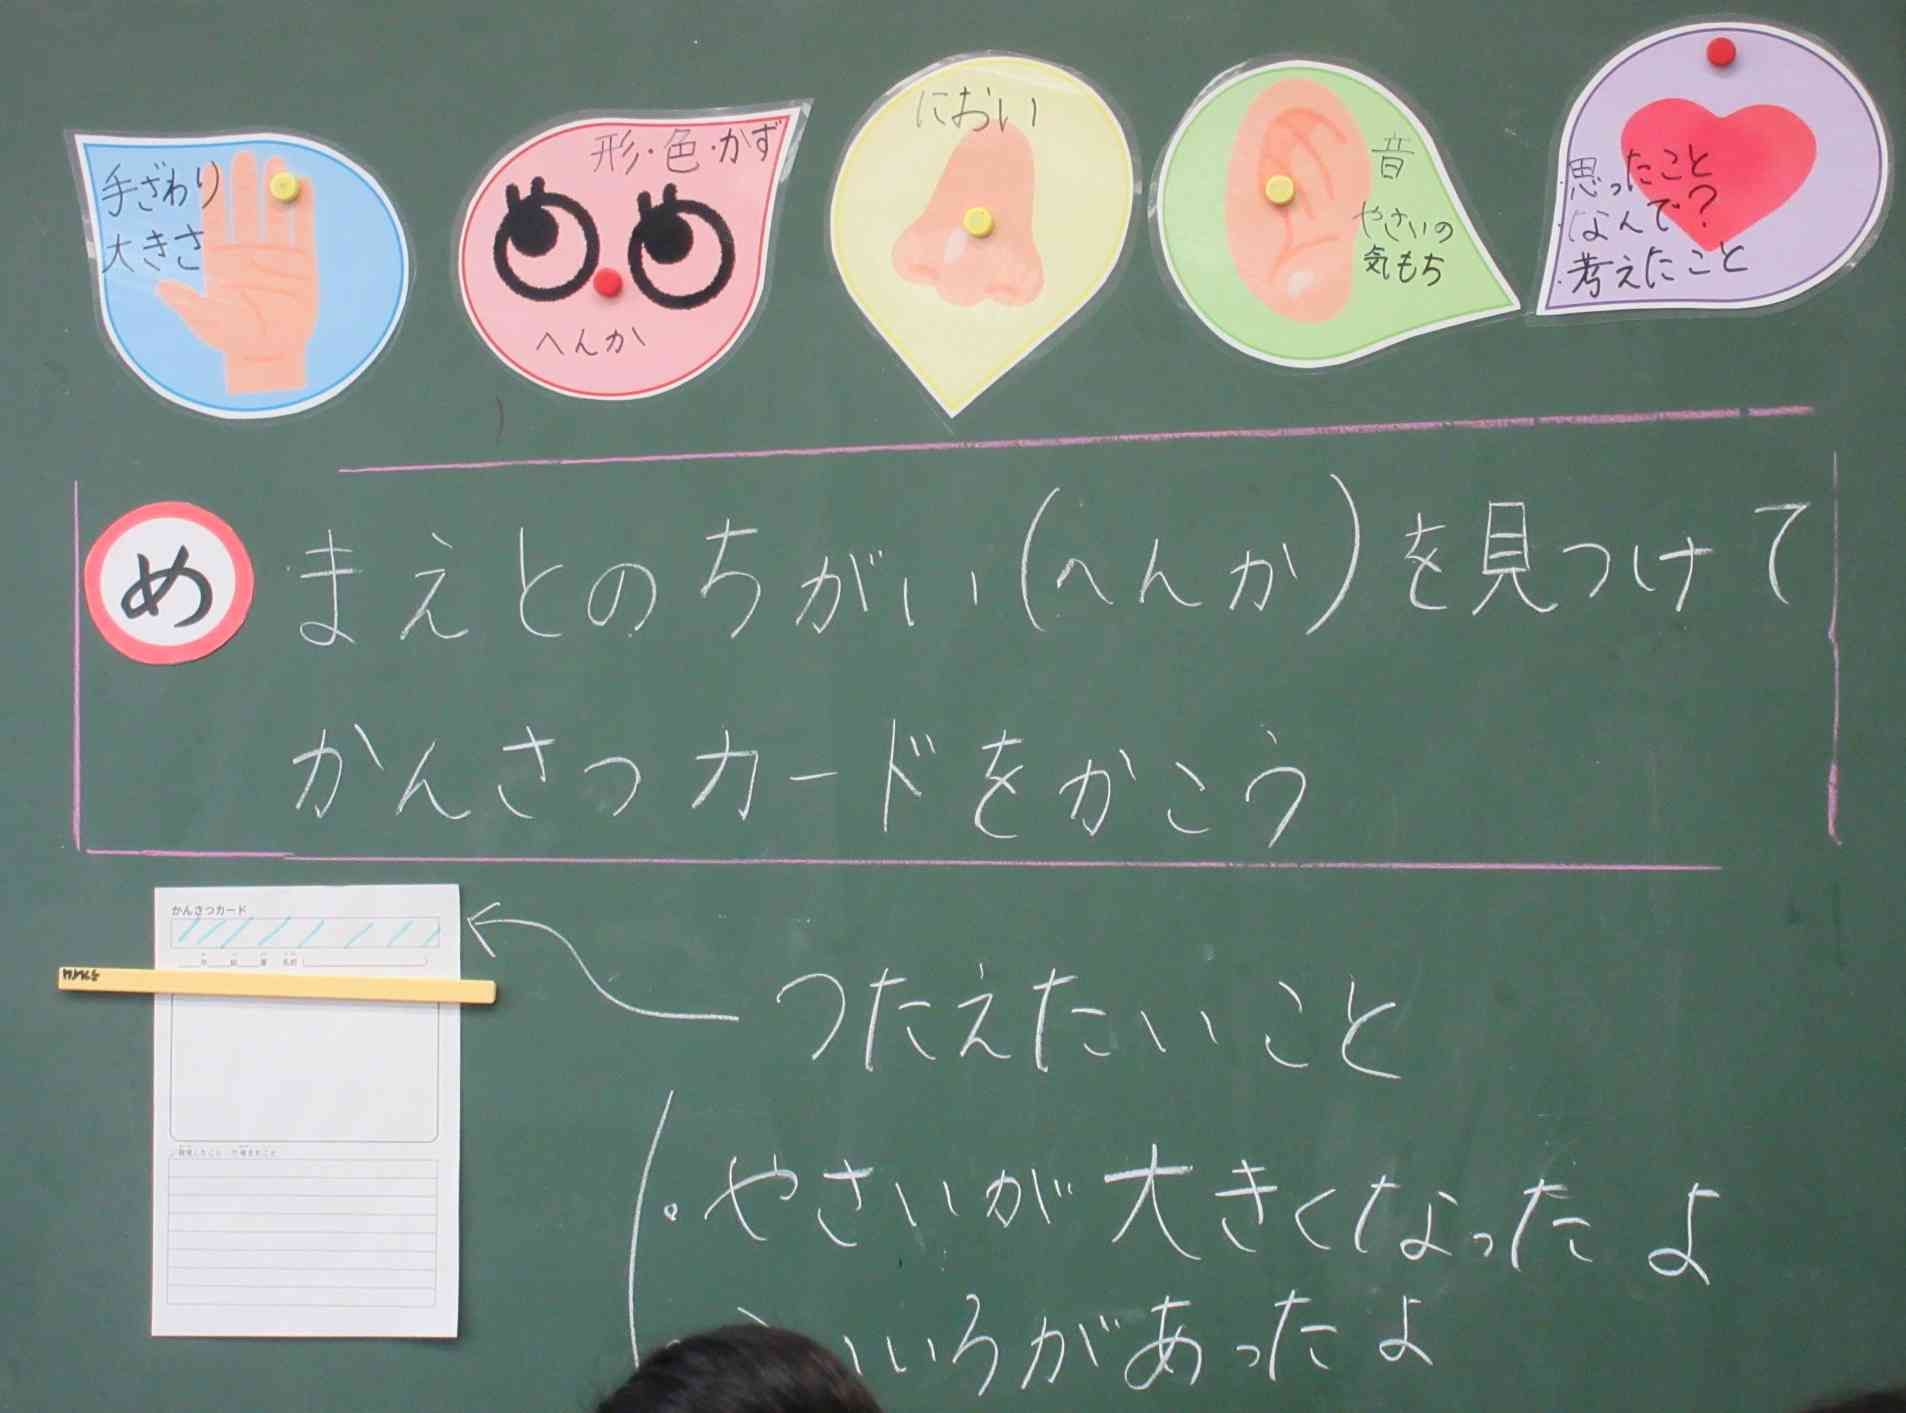 手ざわり
大きさ
形・色・かず
へんか
におい
音
やさいの
気もち
・思ったこと
・なんで?
・考えたこと
め
まえとのちがい(へんか)を見つけて
かんさつカードをかこう
かんさつカード
つたえたいこと
・やさいが大きくなったよ
いろがあったよ